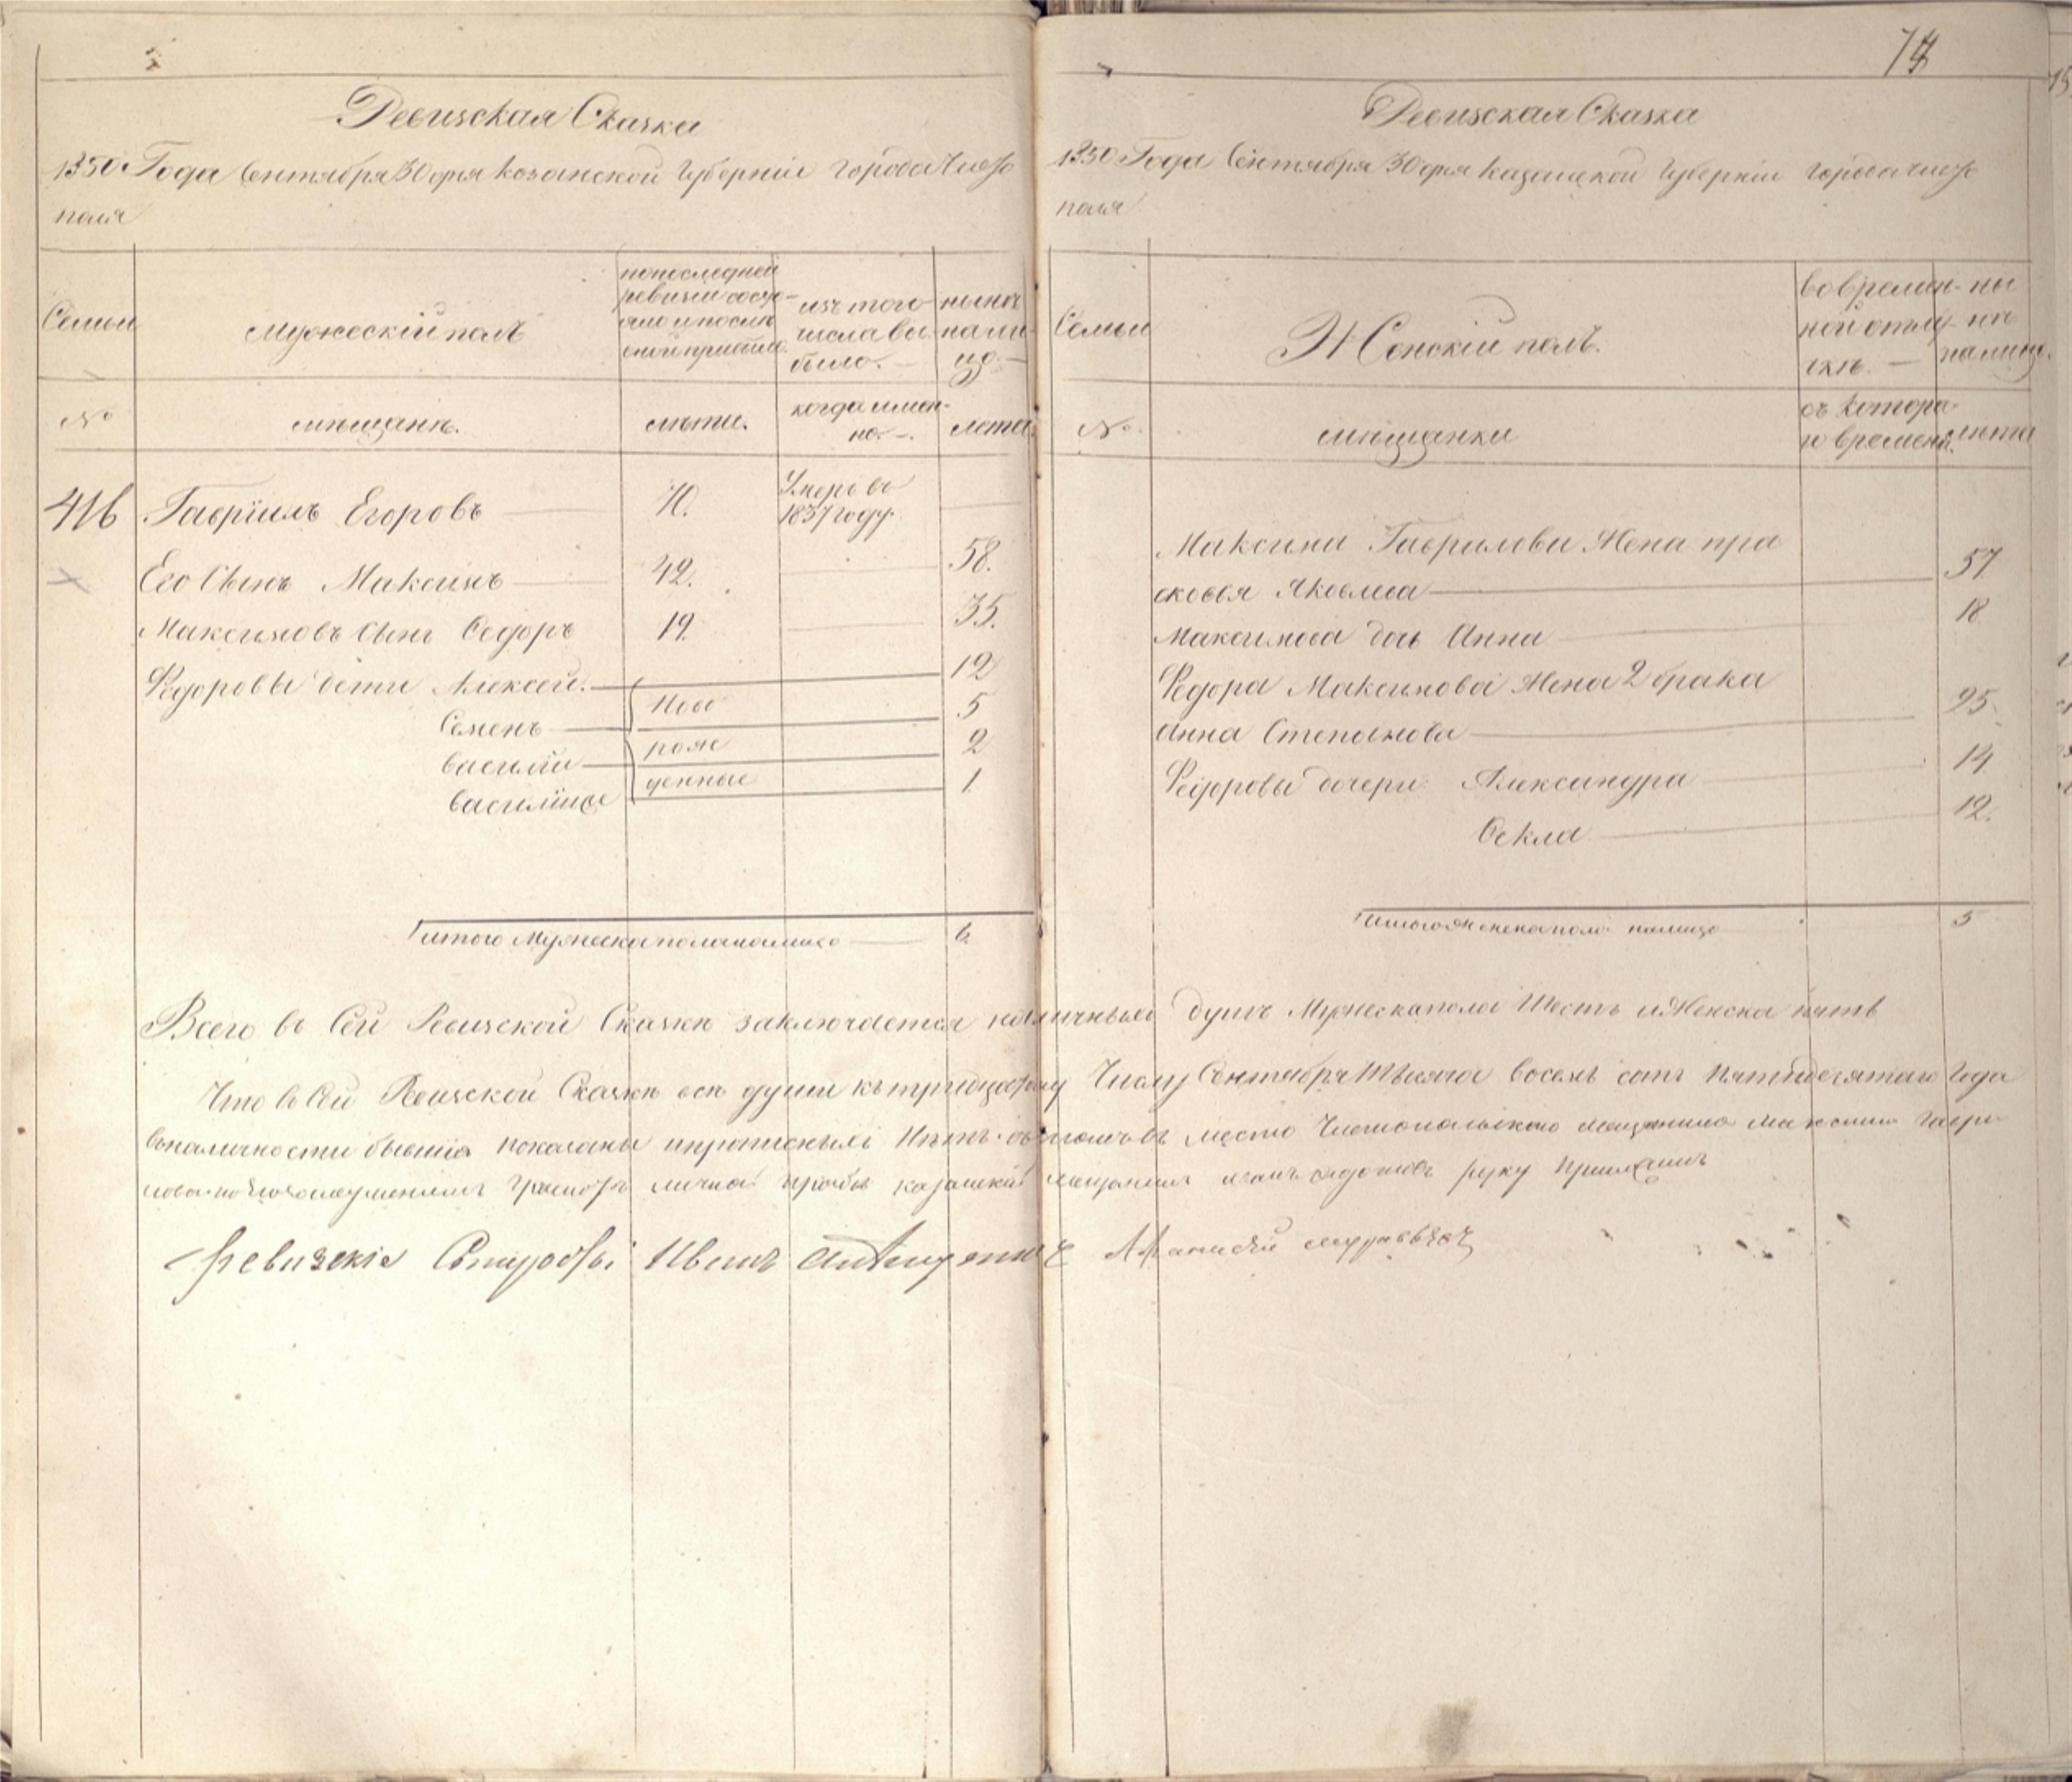 Ревизская Сказка
1850 Года Сентября 30 дня Козанской Губернiи города Чисто
поля
Семьи
мужескiй полъ
по последней
ревизiи состо-
яло и после
оной прибыло.
изъ того
числа вы-
было. —
ныне
на ли-
цо. —
№
мѣщанѣ.
лѣты.
когда имен-
но. —.
лета.
416 Гаврiилъ Егоровъ 70. Умеръ въ
1837 году.
Его Сынъ Максимъ 42. 58.
Максимовъ Сынъ Ѳедоръ 19. 35.
Федоровы дети Алексей. 12
Семенъ Ново 5
василiи рож 2
василiище денные 1.
итого Мужеска пола налицо 6.
74
Ревизская Сказка
1850 Года Сентября 30 дня Казанской Губернiи города Чисто
поля
Семьи
Женскiй полъ.
во времен-
ной отлу-
чкѣ. —
ны
нѣ
налицо.
№
мѣщанки
съ котора-
го времени.
лѣта
Максима Гаврилова Жена пра
сковья Яковлева 57
Максимова дочь Анна 18
Федора Максимова Жена 2 брака
Анна Степанова 25.
Федоровы дочери Александра 14
Ѳекла 12.
итого Женска пола налицо 5
Всего въ Сей Ревизской Сказкѣ заключается наличныхъ душъ Мужеска пола Шесть и Женска пять
Что въ Сей Ревизской Сказкѣ все души къ тридцатому Числу Сентября Тысяча восемь сотъ Пятидесятаго Года
въ наличности бывшiя показаны и прописныхъ Нѣтъ. въ томъ въ место Чистопольскаго мещанина Максима Гаври
лова по личной прозбе казанскiй мещанинъ руку Приложилъ
Ревизскiе Иванъ муравьевъ